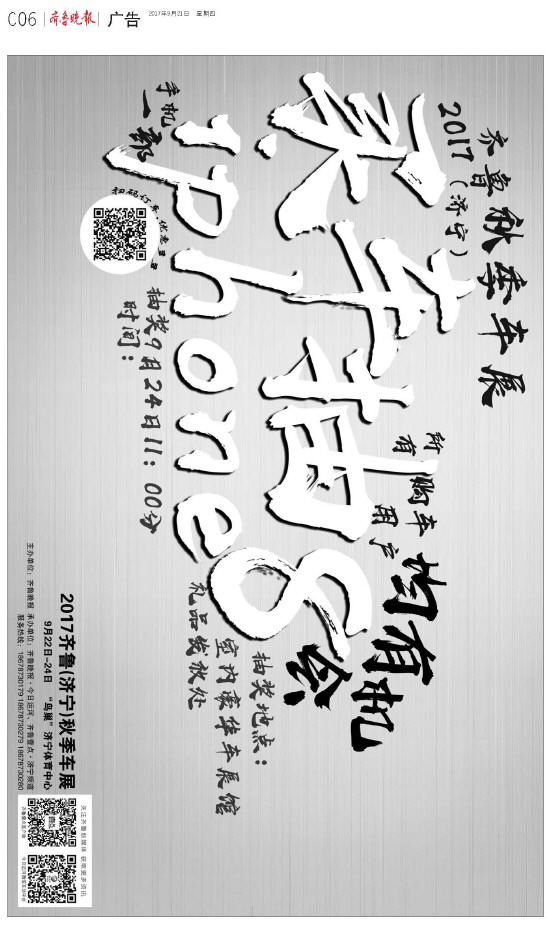 C06 齐鲁晚报 广告 2017年9月21日 星期四
齐鲁秋季车展
2017（济宁）
所有购车用户均有机会
买车抽
iphone8
手机一部
抽奖时间：9月24日11：00分
抽奖地点：
室内豪华车展馆
礼品发放处
2017齐鲁(济宁)秋季车展
9月22日-24日 “鸟巢”济宁体育中心
主办单位：齐鲁晚报 承办单位：齐鲁晚报·今日运河、齐鲁壹点·济宁频道
服务热线：18678730179 18678730279 18678730280
关注齐鲁新媒体 获取更多资讯